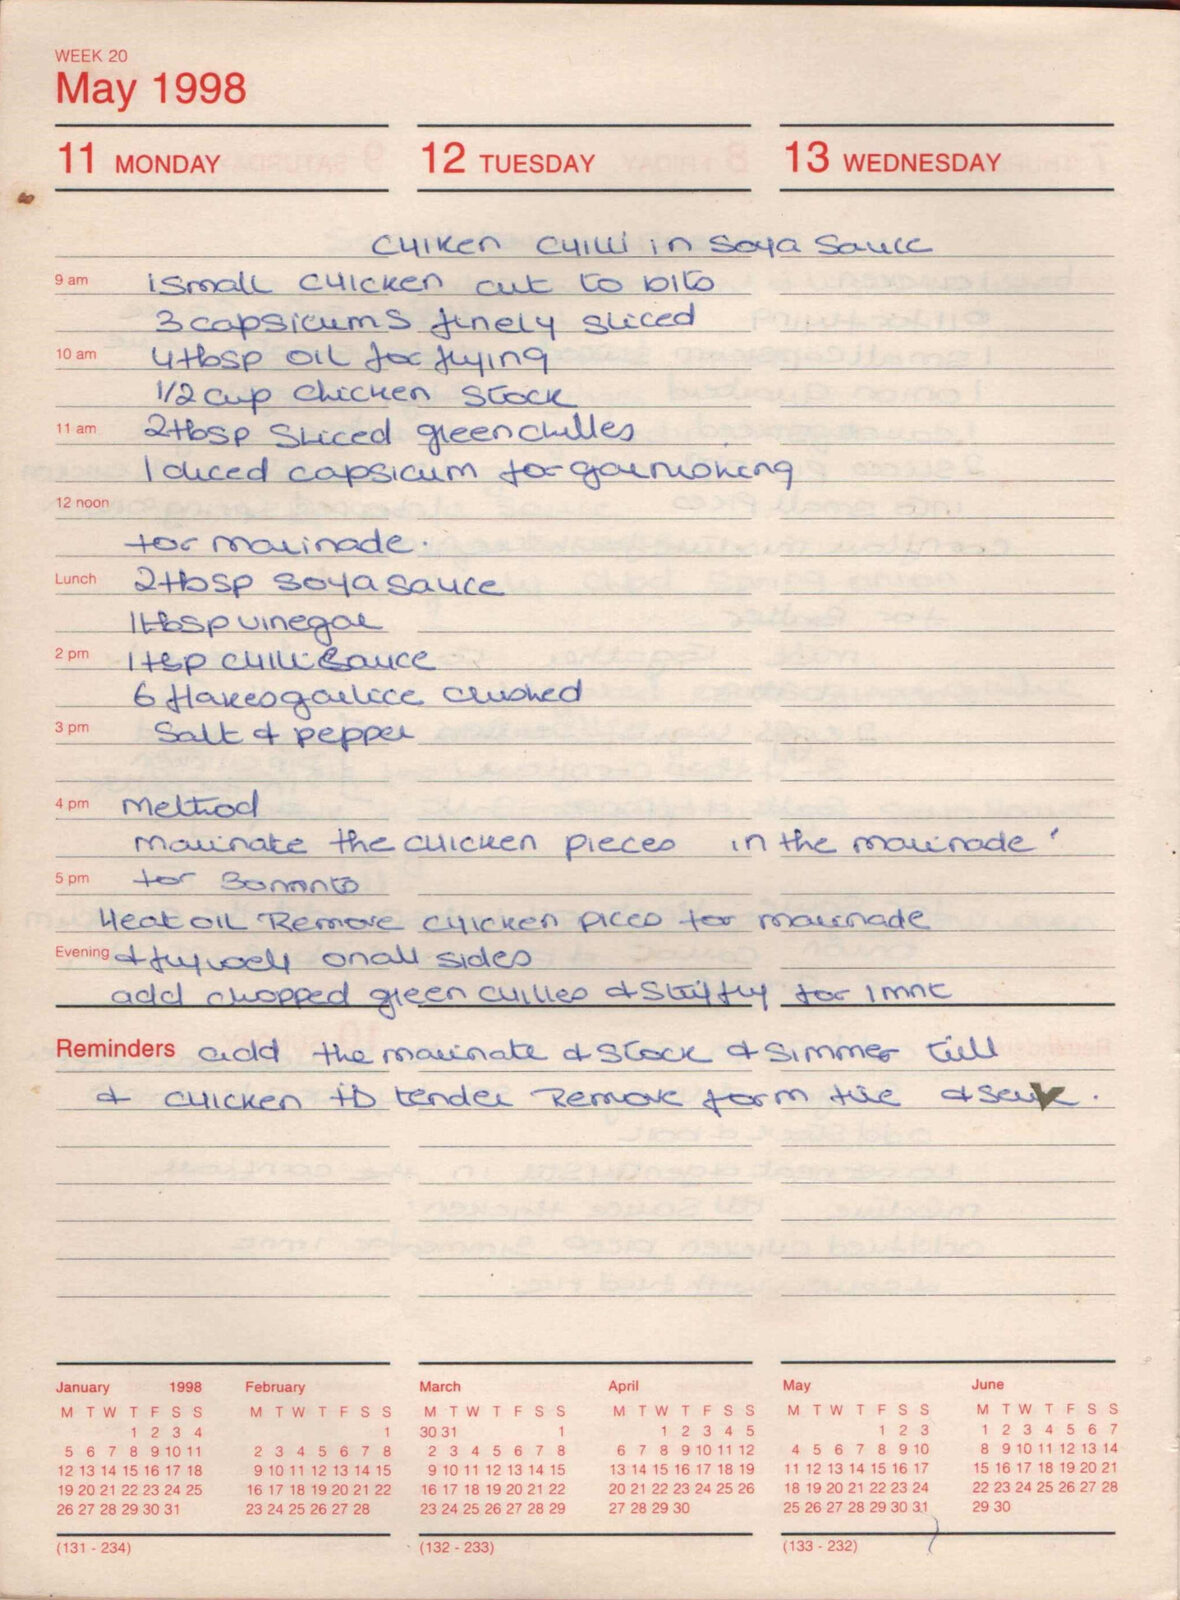 WEEK 20
May 1998
11 MONDAY 12 TUESDAY 13 WEDNESDAY
CHIKEN CHILLI in SOYA SAUCE
9 am 1 Small CHICKEN cut to bits
3 capsicums finely sliced
10 am 4 tbsp OIL for frying
1/2 cup chicken stock
11 am 2 tbsp Sliced green chilles
1 diced capsicum for garnishing
12 noon
for marinade.
Lunch 2 tbsp soya sauce
1 tbsp vinegar
2 pm 1 tsp chilli sauce
6 flakes garlice crushed
3 pm Salt & pepper
4 pm Method
marinate the chicken pieces in the marinade
5 pm for 30 mnts
Heat oil Remove chicken pices for marinade
Evening & fry well on all sides
add chopped green chilles & Stirfry for 1 mnt
Reminders add the marinate & stock & simmer till
& chicken is tender Remove form fire & serve.
January 1998 February March April May June
M T W T F S S M T W T F S S M T W T F S S M T W T F S S M T W T F S S M T W T F S S
1 2 3 4 1 30 31 1 1 2 3 4 5 1 2 3 1 2 3 4 5 6 7
5 6 7 8 9 10 11 2 3 4 5 6 7 8 2 3 4 5 6 7 8 6 7 8 9 10 11 12 4 5 6 7 8 9 10 8 9 10 11 12 13 14
12 13 14 15 16 17 18 9 10 11 12 13 14 15 9 10 11 12 13 14 15 13 14 15 16 17 18 19 11 12 13 14 15 16 17 15 16 17 18 19 20 21
19 20 21 22 23 24 25 16 17 18 19 20 21 22 16 17 18 19 20 21 22 20 21 22 23 24 25 26 18 19 20 21 22 23 24 22 23 24 25 26 27 28
26 27 28 29 30 31 23 24 25 26 27 28 23 24 25 26 27 28 29 27 28 29 30 25 26 27 28 29 30 31 29 30
(131 - 234) (132 - 233) (133 - 232)